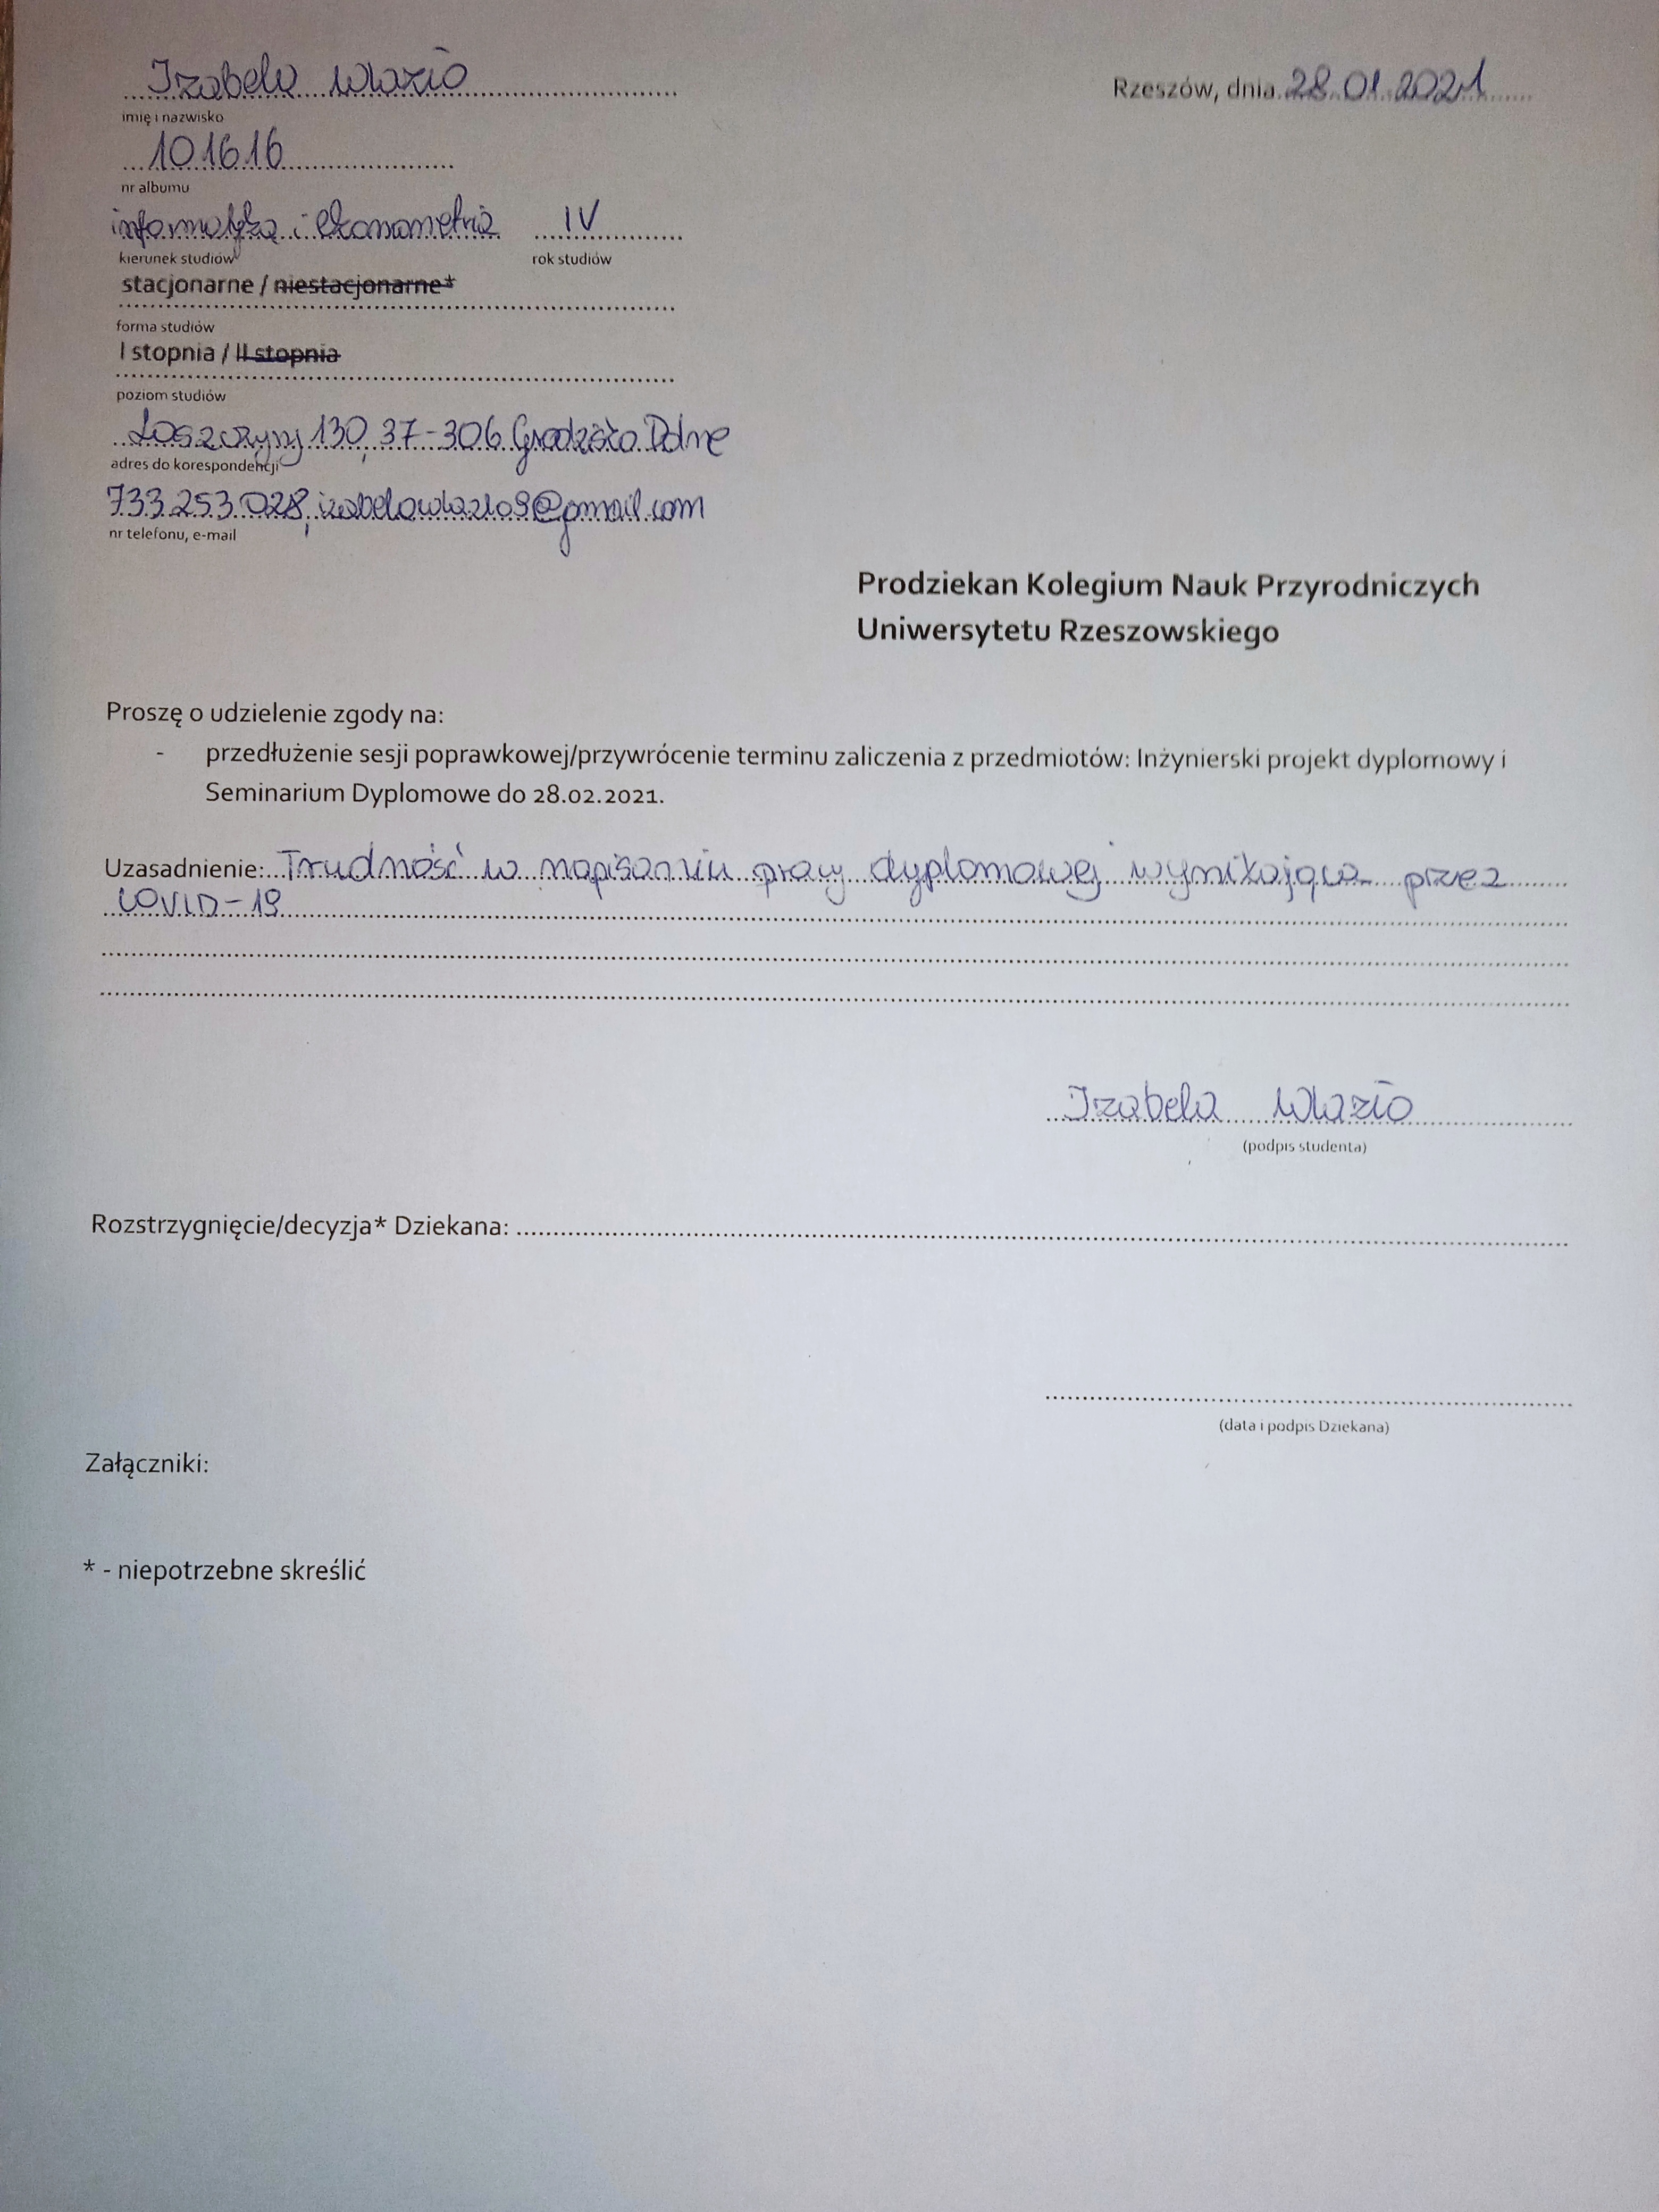 Izabela Wlazło
Rzeszów, dnia 28.01.2021
imię i nazwisko
101616
nr albumu
informatyka i ekonometria IV
kierunek studiów rok studiów
stacjonarne / niestacjonarne*
forma studiów
I stopnia / II stopnia
poziom studiów
130, 37-306 Grodzisko Dolne
adres do korespondencji
733 253 028, izabelawlazlo9@gmail.com
nr telefonu, e-mail
Prodziekan Kolegium Nauk Przyrodniczych
Uniwersytetu Rzeszowskiego
Proszę o udzielenie zgody na:
- przedłużenie sesji poprawkowej/przywrócenie terminu zaliczenia z przedmiotów: Inżynierski projekt dyplomowy i
Seminarium Dyplomowe do 28.02.2021.
Uzasadnienie: Trudność w napisaniu pracy dyplomowej wynikająca przez
COVID-19
Izabela Wlazło
(podpis studenta)
Rozstrzygnięcie/decyzja* Dziekana:
(data i podpis Dziekana)
Załączniki:
* - niepotrzebne skreślić